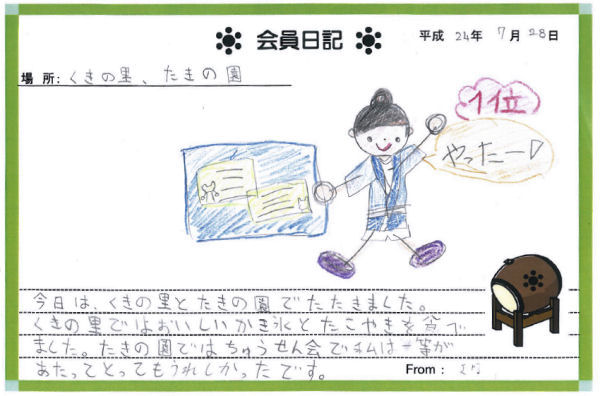 会員日記
平成 24年 7月 28日
場所: くきの里、たきの園
1位
やったー♡
今日は、くきの里とたきの園でたたきました。
くきの里ではおいしいかき氷とたこやきを食べ
ました。たきの園ではちゅうせん会で私は一等が
あたってとってもうれしかったです。
From :